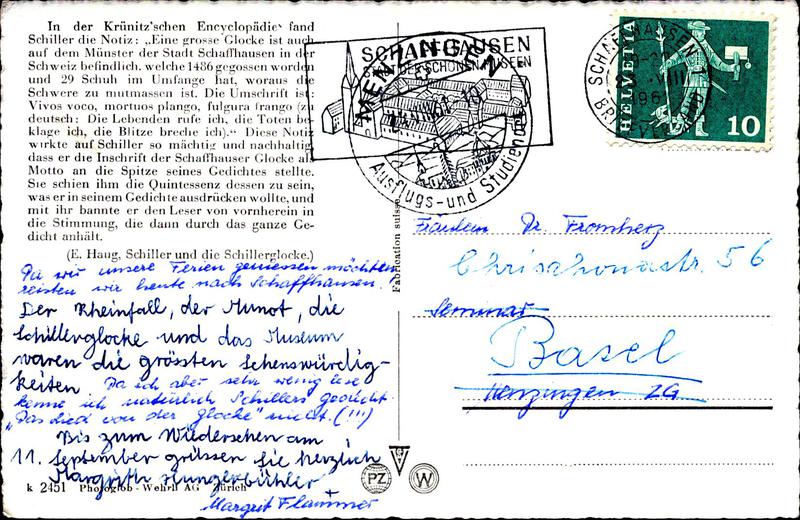 In der Krünitz'schen Encyclopädie fand
Schiller die Notiz: „Eine grosse Glocke ist auch
auf dem Münster der Stadt Schaffhausen in der
Schweiz befindlich, welche 1486 gegossen worden
und 29 Schuh im Umfange hat, woraus die
Schwere zu mutmassen ist. Die Umschrift ist:
Vivos voco, mortuos plango, fulgura frango (zu
deutsch: Die Lebenden rufe ich, die Toten be-
klage ich, die Blitze breche ich).“ Diese Notiz
wirkte auf Schiller so mächtig und nachhaltig,
dass er die Inschrift der Schaffhauser Glocke als
Motto an die Spitze seines Gedichtes stellte.
Sie schien ihm die Quintessenz dessen zu sein,
was er in seinem Gedichte ausdrücken wollte, und
mit ihr bannte er den Leser von vornherein in
die Stimmung, die dann durch das ganze Ge-
dicht anhält.
(E. Haug, Schiller und die Schillerglocke.)
Da wir unsere Ferien geniessen möchten
reisten wir heute nach Schaffhausen.
Der Rheinfall, der Munot, die
Schillerglocke und das Museum
waren die grössten Sehenswürdig-
keiten Da ich aber sehr wenig lese
kenne ich natürlich Schillers Gedicht
„Das Lied von der Glocke" nicht. (!!!)
Bis zum Wiedersehen am
11. September grüssen Sie herzlich
Margrith Hungerbühler
Margrit Flammer
k 2451 Photoglob-Wehrli AG Zürich
Fabrication suisse
PZ
W
SCHAFFHAUSEN
STADT DER SCHÖNEN MUSEEN
MENZINGEN
Ausflugs- und Studienort
SCHAFFHAUSEN 1
VIII
196
BRIEFVERSAND
HELVETIA
10
Fräulein Dr. Fromherz
Chrischonastr. 56
Seminar
Basel
Menzingen ZG